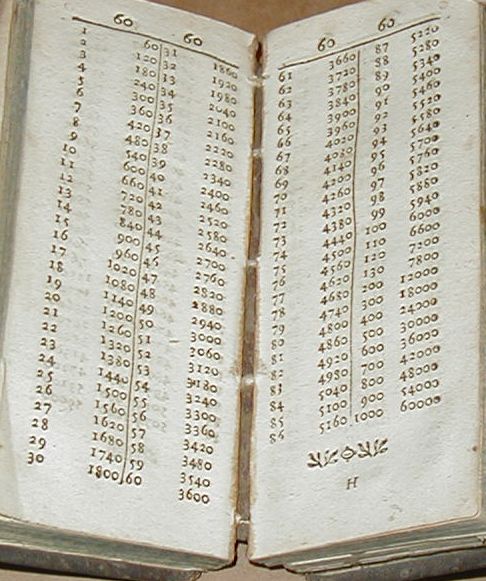 60 60
1 60 31 1860
2 120 32 1920
3 180 33 1980
4 240 34 2040
5 300 35 2100
6 360 36 2160
7 420 37 2220
8 480 38 2280
9 540 39 2340
10 600 40 2400
11 660 41 2460
12 720 42 2520
13 780 43 2580
14 840 44 2640
15 900 45 2700
16 960 46 2760
17 1020 47 2820
18 1080 48 2880
19 1140 49 2940
20 1200 50 3000
21 1260 51 3060
22 1320 52 3120
23 1380 53 3180
24 1440 54 3240
25 1500 55 3300
26 1560 56 3360
27 1620 57 3420
28 1680 58 3480
29 1740 59 3540
30 1800 60 3600
60 60
61 3660 87 5220
62 3720 88 5280
63 3780 89 5340
64 3840 90 5400
65 3900 91 5460
66 3960 92 5520
67 4020 93 5580
68 4080 94 5640
69 4140 95 5700
70 4200 96 5760
71 4260 97 5820
72 4320 98 5880
73 4380 99 5940
74 4440 100 6000
75 4500 110 6600
76 4560 120 7200
77 4620 130 7800
78 4680 200 12000
79 4740 300 18000
80 4800 400 24000
81 4860 500 30000
82 4920 600 36000
83 4980 700 42000
84 5040 800 48000
85 5100 900 54000
86 5160 1000 60000
H